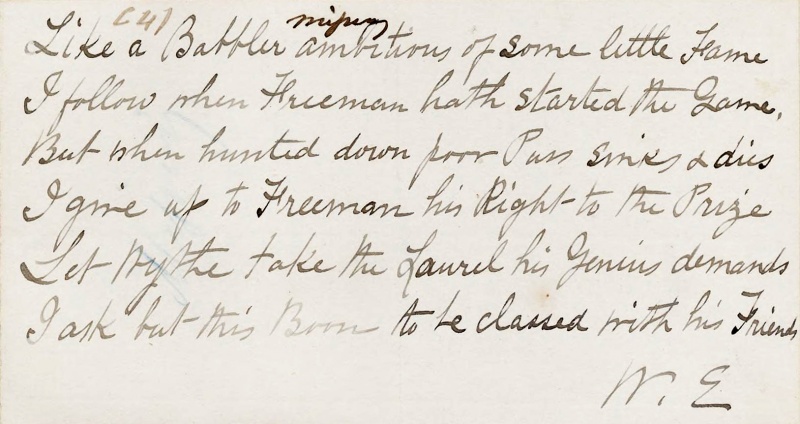 (4)
Like a Babbler ambitious of some little Fame
I follow when Freeman hath started the Game,
But when hunted down poor Puss sinks & dies
I give up to Freeman his Right to the Prize
Let Wythe take the Laurel his Genius demands
I ask but this Boon to be classed with his Friends
W. E